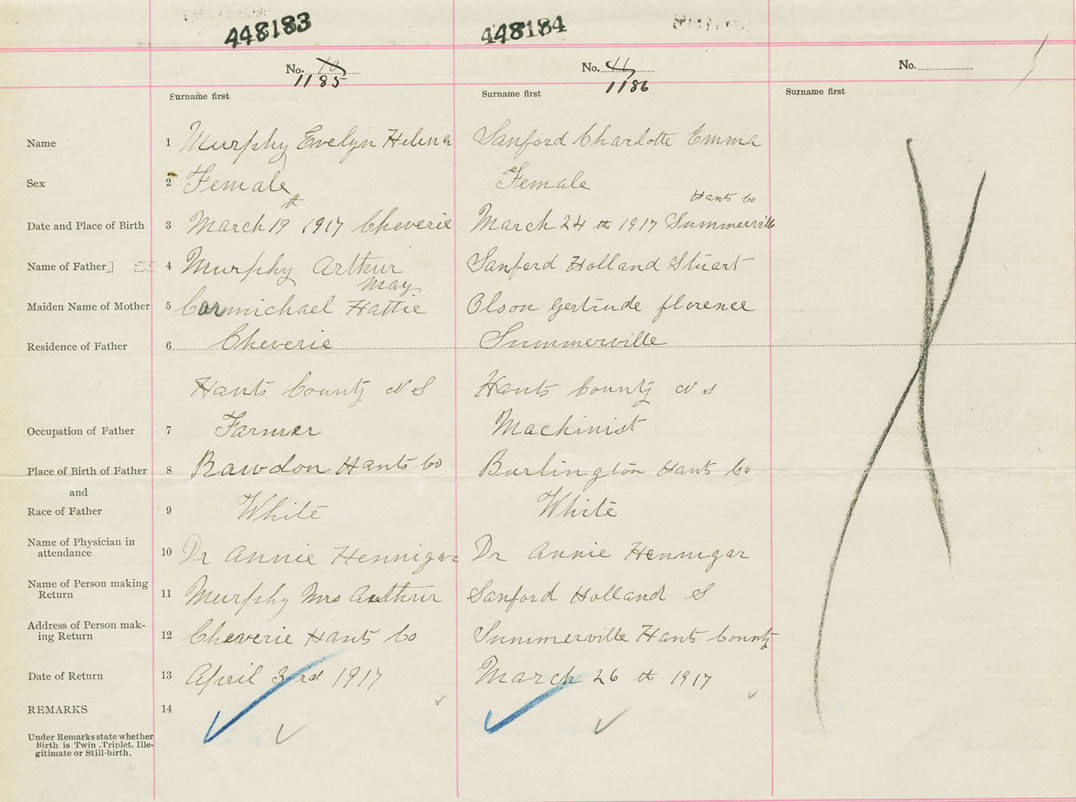 448183 448184
No. 10 No. 11 No.
1185 1186
Surname first Surname first Surname first
Name 1 Murphy Evelyn Helena Sanford Charlotte Emma
Sex 2 Female Female
Hants Co
Date and Place of Birth 3 March 19th 1917 Cheverie March 24th 1917 Summerville
Name of Father 4 Murphy Arthur Sanford Holland Stuart
May
Maiden Name of Mother 5 Carmichael Hattie Olson Gertrude florence
Residence of Father 6 Cheverie Summerville
Hants County N S Hants County N S
Occupation of Father 7 Farmer Machinist
Place of Birth of Father 8 Rawdon Hants Co Burlington Hants Co
and
Race of Father 9 White White
Name of Physician in
attendance 10 Dr Annie Hennigar Dr Annie Hennigar
Name of Person making
Return 11 Murphy Mrs Arthur Sanford Holland S
Address of Person mak-
ing Return 12 Cheverie Hants Co Summerville Hants County
Date of Return 13 April 3rd 1917 March 26th 1917
REMARKS 14
Under Remarks state whether
Birth is Twin, Triplet, Ille-
gitimate or Still-birth.